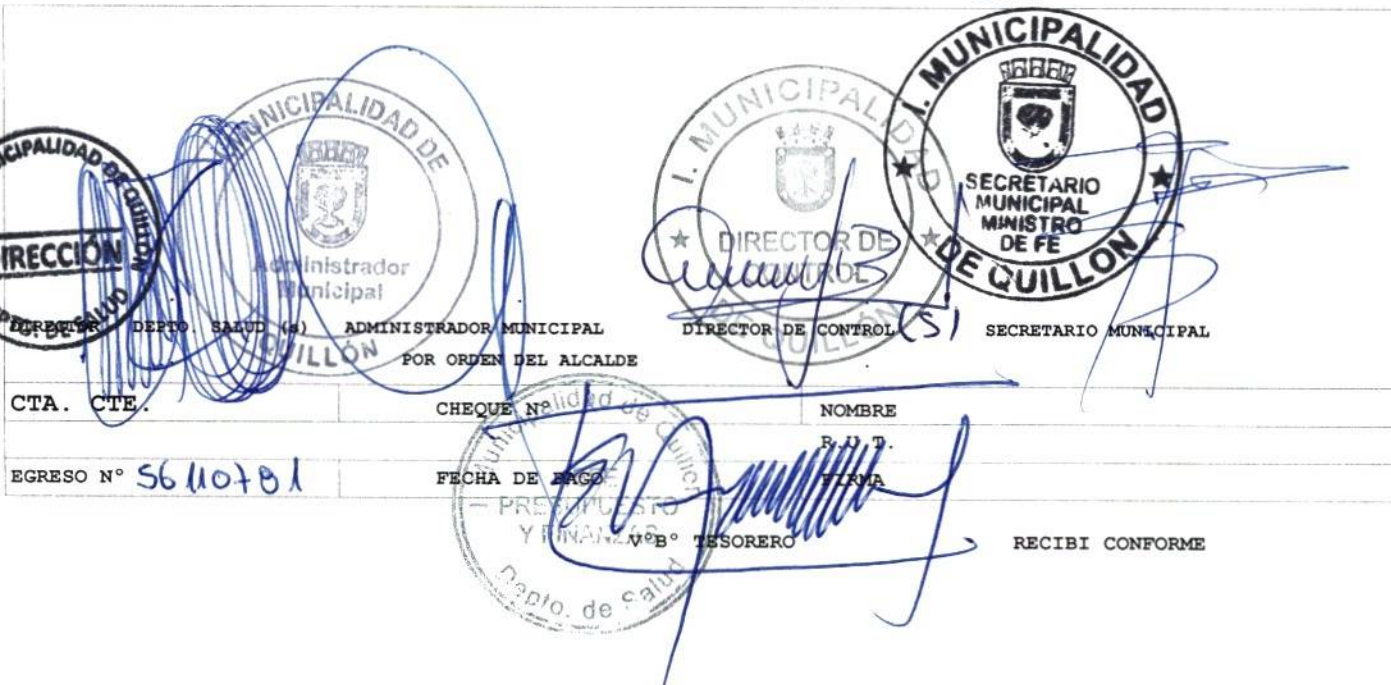 MUNICIPALIDAD DE QUILLÓN
DIRECCIÓN
DEPTO. DE SALUD
MUNICIPALIDAD DE
Administrador
Municipal
QUILLÓN
I. MUNICIPALIDAD
DIRECTOR DE
CONTROL
DE QUILLÓN
I. MUNICIPALIDAD
SECRETARIO
MUNICIPAL
MINISTRO
DE FE
DE QUILLON
DIRECTOR DEPTO. SALUD (s) ADMINISTRADOR MUNICIPAL DIRECTOR DE CONTROL (S) SECRETARIO MUNICIPAL
POR ORDEN DEL ALCALDE
CTA. CTE. CHEQUE N° NOMBRE
R.U.T.
EGRESO N° FECHA DE PAGO FIRMA
Municipalidad de Quillon
PRESUPUESTO
Y FINANZAS
Depto. de Salud
V°B° TESORERO RECIBI CONFORME